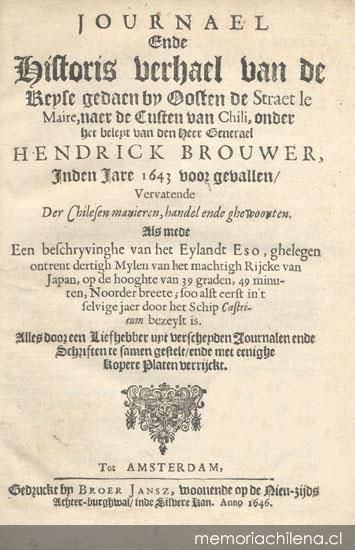 JOURNAEL
Ende
Historis verhael van de
Reyse gedaen by Oosten de Straet le
Maire, naer de Custen van Chili, onder
het beleyt van den Heer Generael
HENDRICK BROUWER,
Inden Jare 1643 voor gevallen/
Vervatende
Der Chilesen manieren, handel ende ghewoonten.
Als mede
Een beschryvinghe van het Eylandt Eso, ghelegen
ontrent dertigh Mylen van het machtigh Rijcke van
Japan, op de hooghte van 39 graden, 49 minu-
ten, Noorder breete; soo alst eerst in't
selvige jaer door het Schip Castri-
cum bezeylt is.
Alles door een Liefhebber uyt verscheyden Journalen ende
Schriften te samen gestelt/ende met eenighe
kopere Platen verrijckt.
Tot AMSTERDAM,
Gedruckt by BROER JANSZ, woonende op de Nieu-zijds
Achter-burghwal/inde Silvere Kan. Anno 1646.
memoriachilena.cl